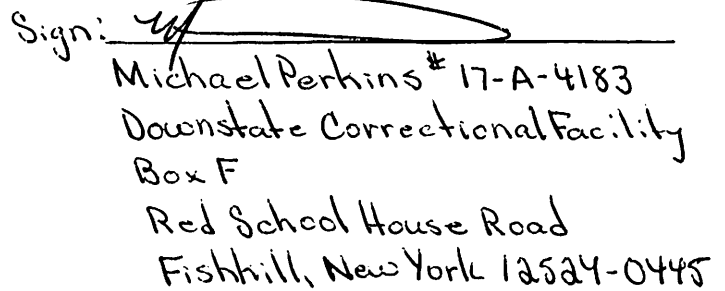 Sign:
Michael Perkins # 17-A-4183
Downstate Correctional Facility
Box F
Red School House Road
Fishkill, New York 12524-0445